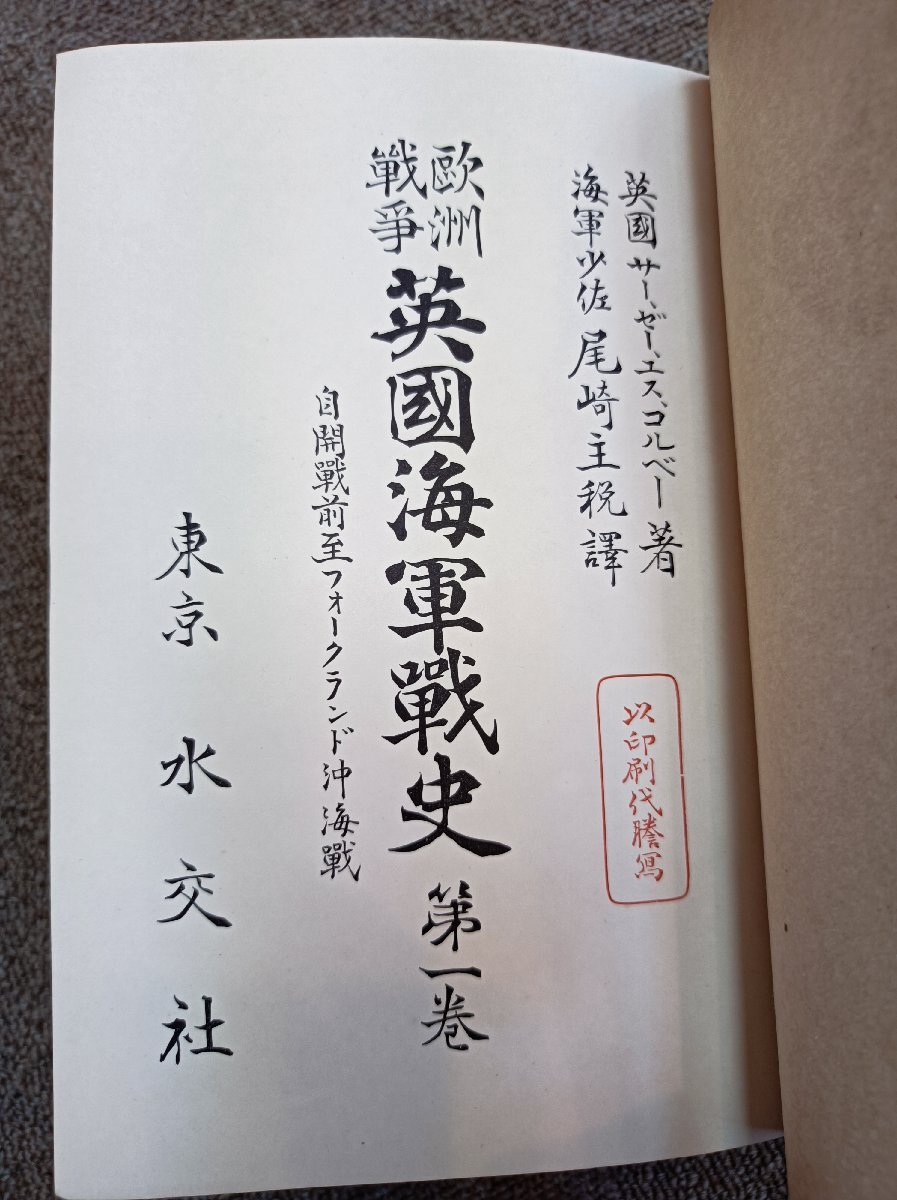 英國サー、ゼー、エス、コルベー著
海軍少佐尾崎主税譯
以印刷代謄寫
歐洲
戰爭
英國海軍戰史 第一巻
自開戰前至フォークランド沖海戰
東京 水交社